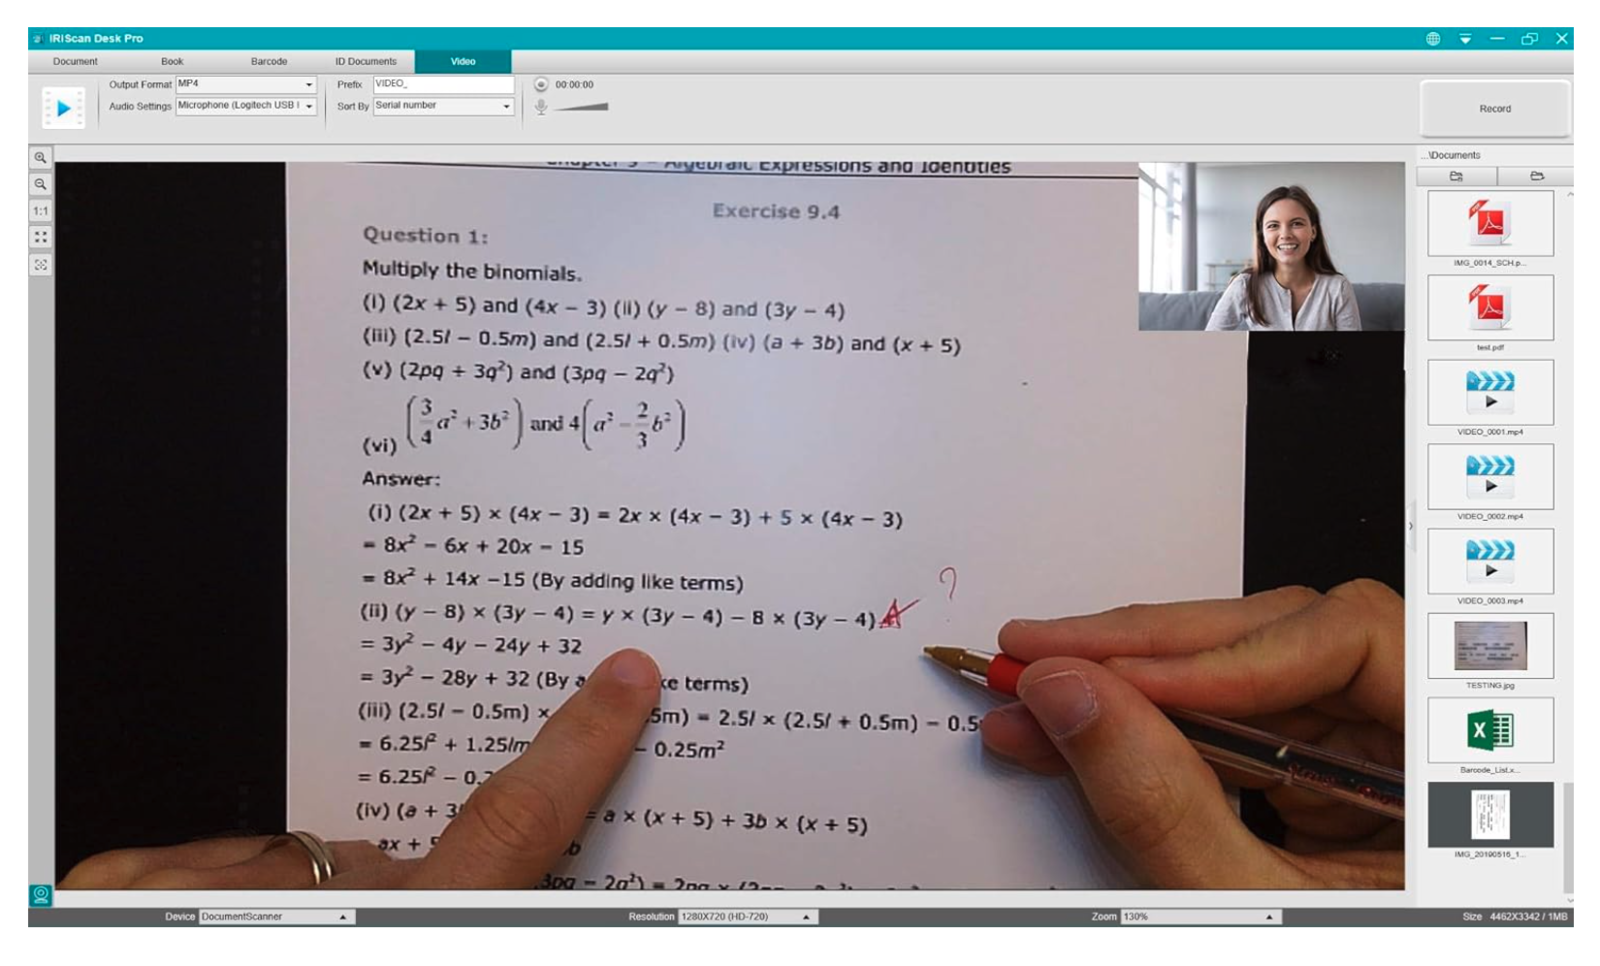 IRIScan Desk Pro
Document Book Barcode ID Documents Video
Output Format MP4 Prefix VIDEO_ 00:00:00
Audio Settings Microphone (Logitech USB Sort By Serial number
Record
...\Documents
1:1
Expressions and Identities
Exercise 9.4
Question 1:
Multiply the binomials.
(i) (2x + 5) and (4x − 3) (ii) (y − 8) and (3y − 4)
(iii) (2.5l − 0.5m) and (2.5l + 0.5m) (iv) (a + 3b) and (x + 5)
(v) (2pq + 3q²) and (3pq − 2q²)
(vi) (3/4 a² + 3b²) and 4(a² − 2/3 b²)
Answer:
(i) (2x + 5) × (4x − 3) = 2x × (4x − 3) + 5 × (4x − 3)
= 8x² − 6x + 20x − 15
= 8x² + 14x −15 (By adding like terms)
?
(ii) (y − 8) × (3y − 4) = y × (3y − 4) − 8 × (3y − 4)
= 3y² − 4y − 24y + 32
= 3y² − 28y + 32 (By terms)
(iii) (2.5l − 0.5m) × 5m) = 2.5l × (2.5l + 0.5m) − 0.5
= 6.25l² + 1.25lm − 0.25m²
= 6.25l² − 0.
(iv) (a + 3 = a × (x + 5) + 3b × (x + 5)
ax +
IMG_0014_SCH.p...
test.pdf
VIDEO_0001.mp4
VIDEO_0002.mp4
VIDEO_0003.mp4
TESTING.jpg
Barcode_List.x...
IMG_20190516_1...
Device DocumentScanner Resolution 1280X720 (HD-720) Zoom 130% Size 4462X3342 / 1MB